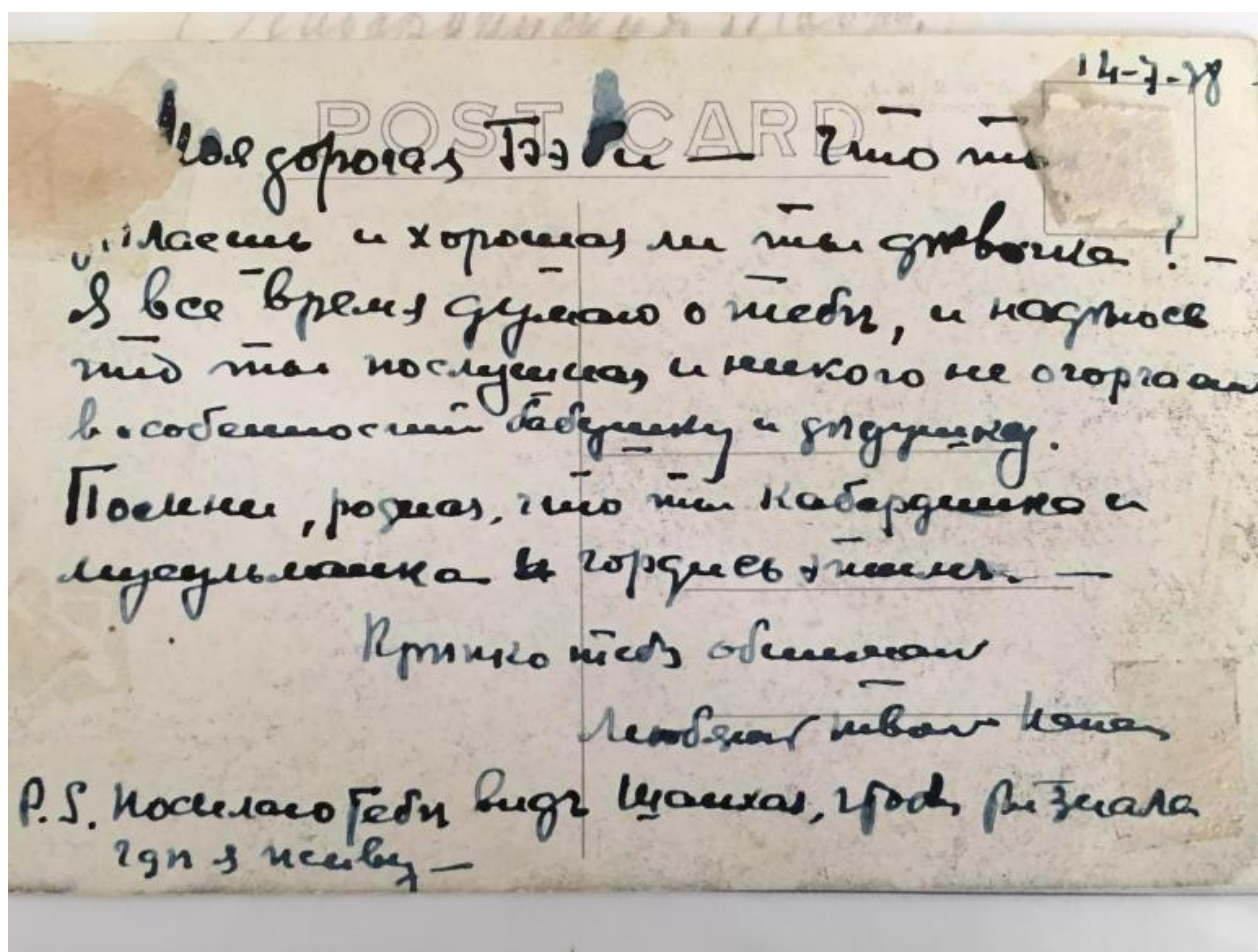 14-7-38
POST CARD
Моя дорогая Бэби — что ты
дѣлаешь и хорошая ли ты дѣвочка! —
Я все время думаю о тебѣ, и надѣюсь
что ты послушная и никого не огорчаешь
в особенности бабушку и дѣдушку.
Помни, родная, что ты Кабардинка и
мусульманка и гордись этимъ. —
Крѣпко тебя обнимаю
Любящая твоя
P.S. Посылаю тебѣ видъ Шанхая, чтобъ ты знала
гдѣ я живу —